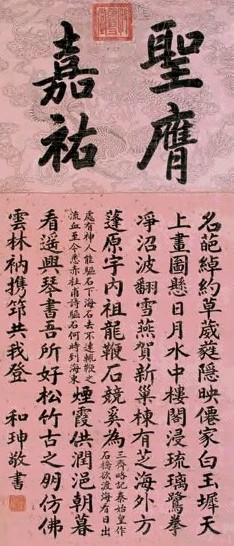 聖膺
嘉祐
名葩綽約草葳蕤隱映僊家白玉墀天
上畫圖懸日月水中樓閣浸琉璃鷺拳
凈沼波翻雪燕賀新巢棟有芝海外方
蓬原宇內祖龍鞭石競奚為
三齊略記秦始皇作
石橋欲渡海看日出
處有神人能驅石下海石去不速輒鞭之
流血至今悉赤杜甫詩驅石何時到海東
煙霞供潤浥朝暮
看遙興琴書吾所好松竹古之明仿佛
雲林衲携筇共我登 和珅敬書